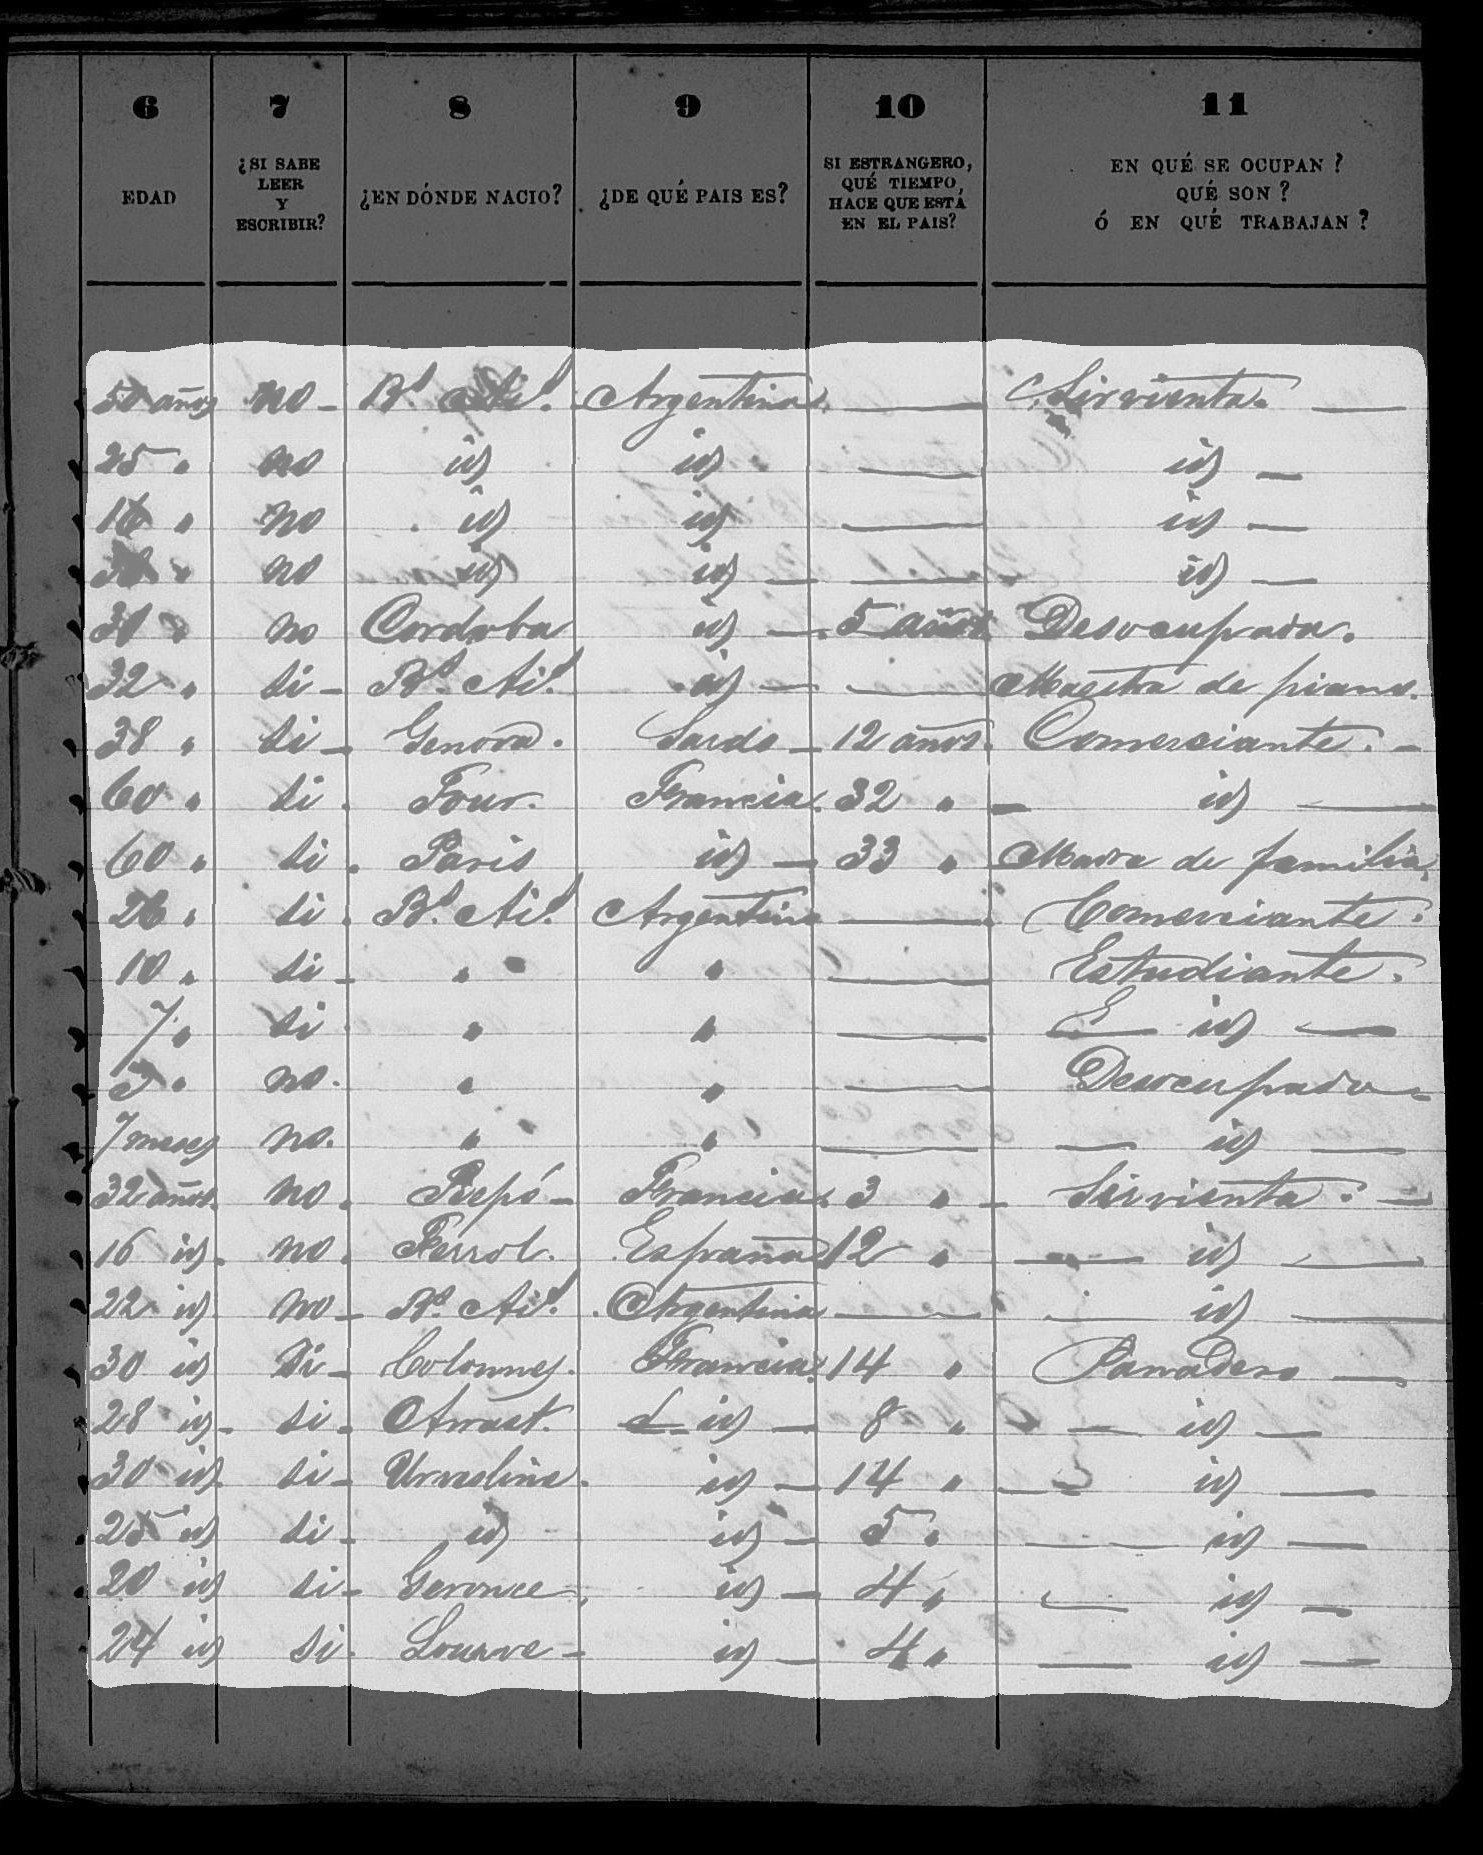 6 7 8 9 10 11
EDAD ¿SI SABE LEER Y ESCRIBIR? ¿EN DÓNDE NACIO? ¿DE QUÉ PAIS ES? SI ESTRANGERO, QUÉ TIEMPO, HACE QUE ESTÁ EN EL PAIS? EN QUÉ SE OCUPAN? QUÉ SON? Ó EN QUÉ TRABAJAN?
50 años no - Bs. Ais. Argentina — Sirvienta. —
25 " no id id — id —
16 " no id id — id —
" no id id — — id —
30 " no Cordoba id — 5 años Desocupada.
32 " si - Bs. Ais. id — — Maestra de piano.
38 " si - Genova. Sardo - 12 años. Comerciante. -
60 " si . Tour. Francia. 32 " — id —
60 " si . Paris id — 33 " Madre de familia.
26 " si . Bs. Ais. Argentina — Comerciante.
10 " si - " " — Estudiante.
7 " si " " — id —
" no. " " — Desocupado -
7 meses no. " " — — id —
32 años. no . Francia. 3 " - Sirvienta. —
16 id. no . Ferrol. España 12 " — id —
22 id. no - Bs. Ais. Argentina — id —
30 id si - Colonnes. Francia. 14 " Panadero —
28 id - si . Arrast. id — 8 " — id —
30 id si - id — 14 " — id —
25 id si - id id — 5 " — id —
20 id si - Geronce id — 4 " — id —
24 id si . Lourve - id — 4 " — id —